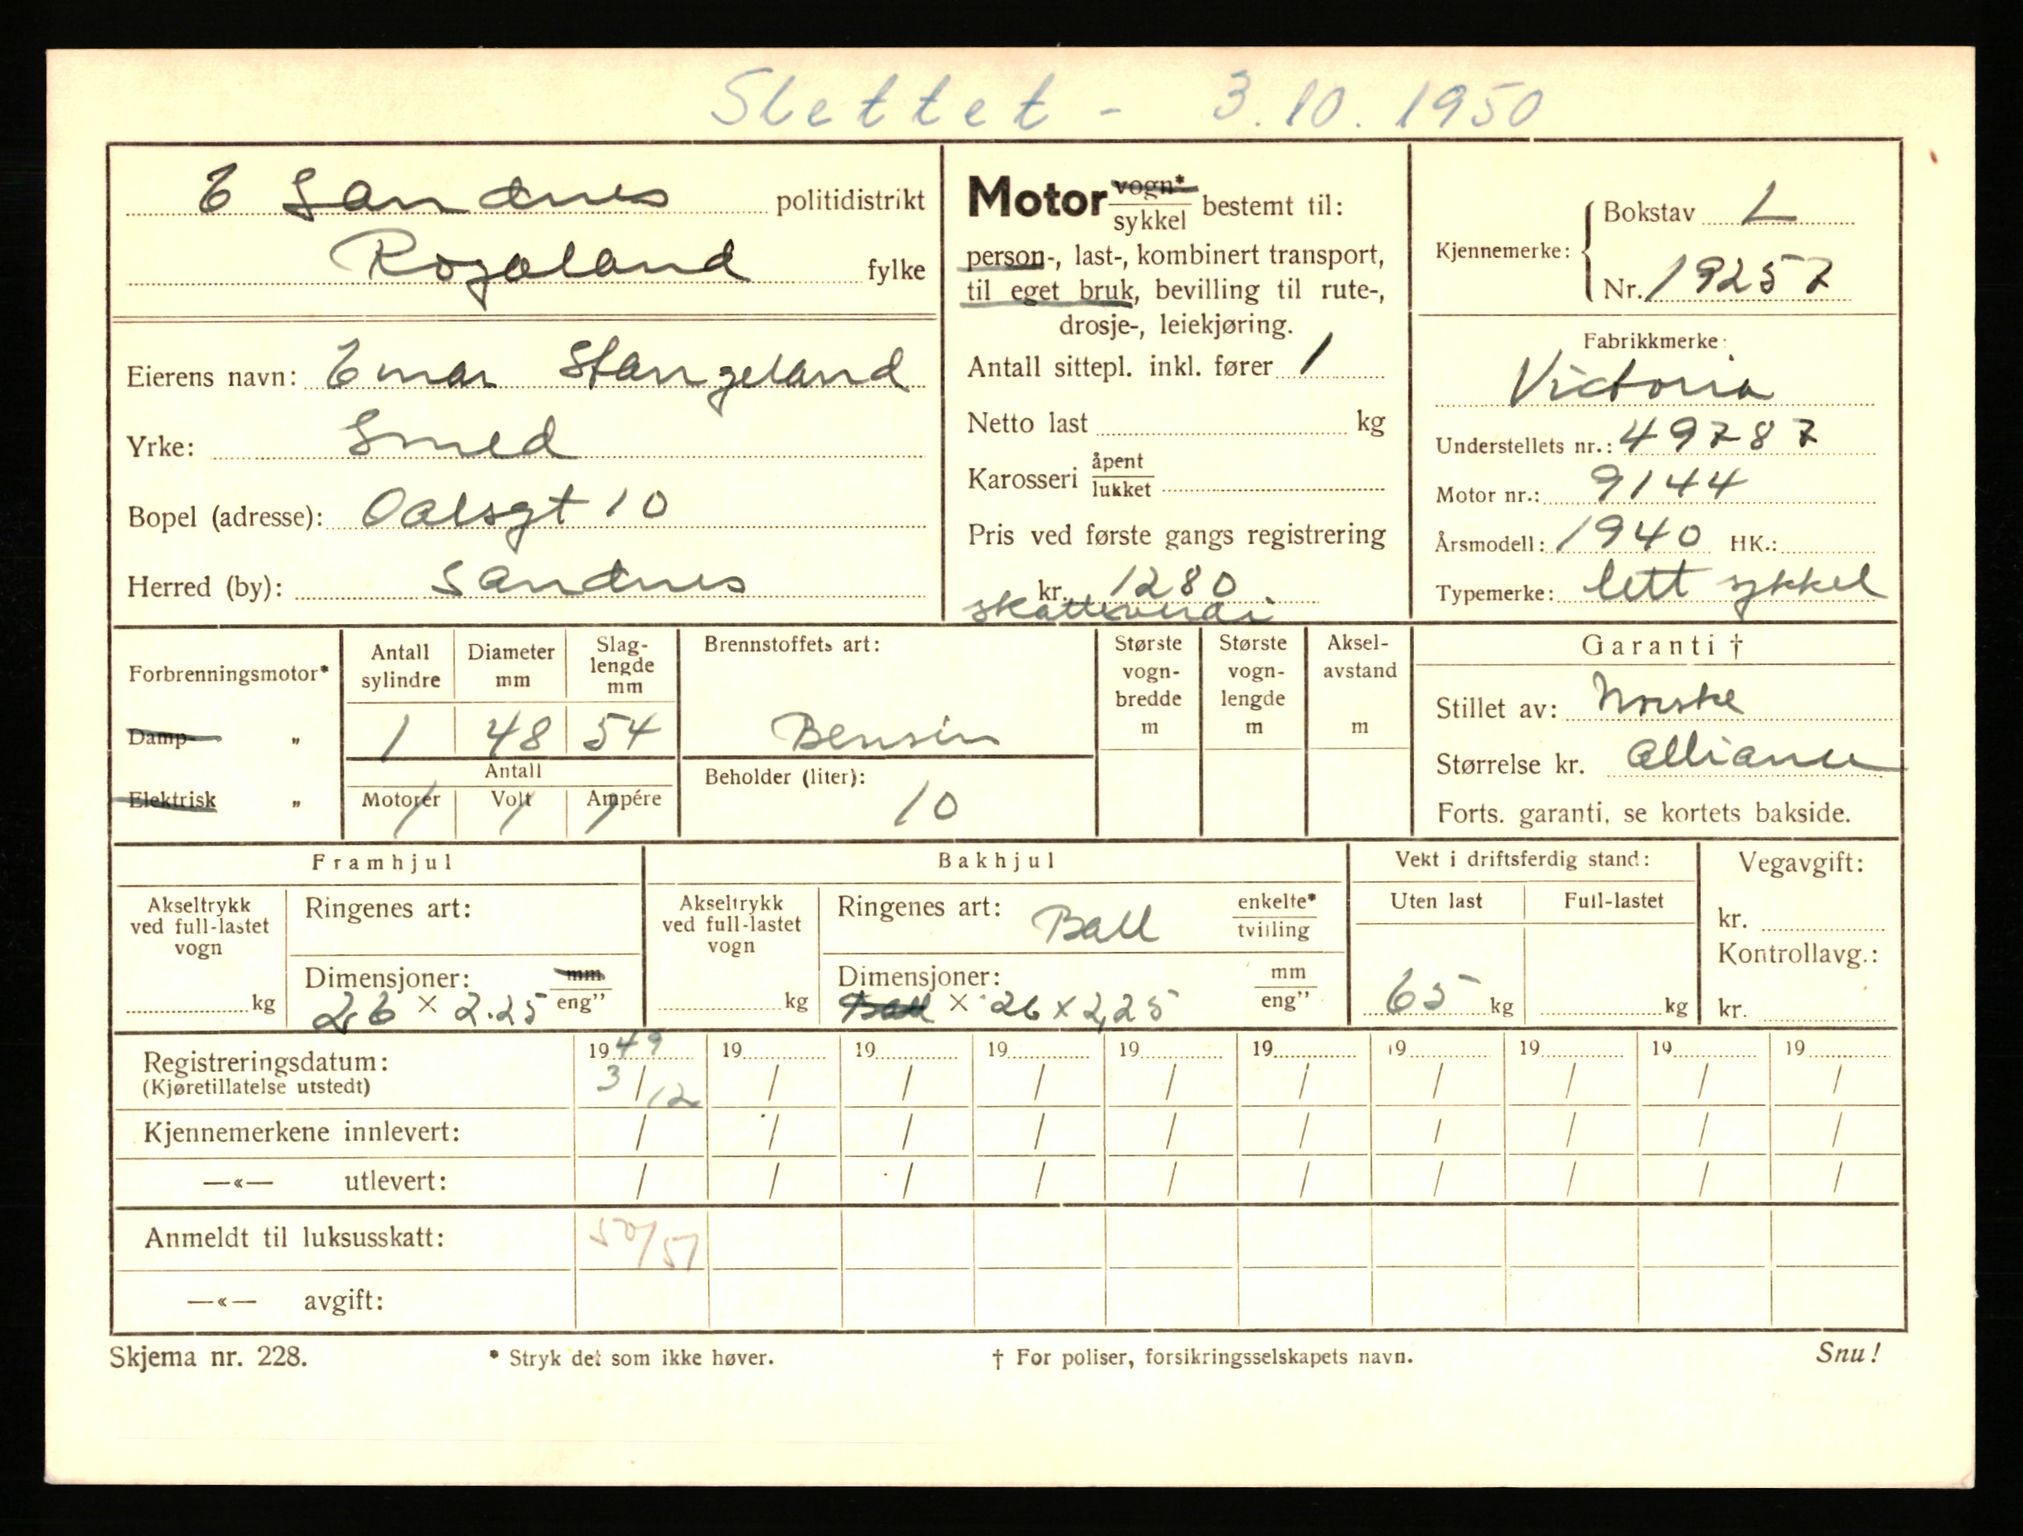 Slettet - 3.10.1950
E Sandnes politidistrikt
Rogaland fylke
Eierens navn: Einar Stangeland
Yrke: Smed
Bopel (adresse): Oalsgt 10
Herred (by): Sandnes
Motor vogn*/sykkel bestemt til:
person-, last-, kombinert transport,
til eget bruk, bevilling til rute-,
drosje-, leiekjøring.
Antall sittepl. inkl. fører 1
Netto last kg
Karosseri åpent/lukket
Pris ved første gangs registrering
kr. 1280
skatteverdi
Kjennemerke: Bokstav L
Nr. 19257
Fabrikkmerke:
Victoria
Understellets nr.: 49787
Motor nr.: 9144
Årsmodell: 1940 HK.:
Typemerke: lett sykkel
Forbrenningsmotor*
Damp "
Elektrisk "
Antall sylindre
1
Diameter mm
48
Slag-lengde mm
54
Antall
Motorer / Volt / Ampére /
Brennstoffets art:
Bensin
Beholder (liter):
10
Største vogn-bredde m
Største vogn-lengde m
Aksel-avstand m
Garanti †
Stillet av: Norske
Størrelse kr. Alliance
Forts. garanti, se kortets bakside.
Framhjul
Akseltrykk ved full-lastet vogn
kg
Ringenes art:
Dimensjoner: mm/eng"
26 × 2.25
Bakhjul
Akseltrykk ved full-lastet vogn
kg
Ringenes art: Ball enkelte*/tvilling
Dimensjoner: mm/eng"
Ball × 26 x 2,25
Vekt i driftsferdig stand:
Uten last
65 kg
Full-lastet
kg
Vegavgift:
kr.
Kontrollavg.:
kr.
Registreringsdatum: 1949 19 19 19 19 19 19 19 19 19
(Kjøretillatelse utstedt) 3/12 / / / / / / / / /
Kjennemerkene innlevert: / / / / / / / / / /
—«— utlevert: / / / / / / / / / /
Anmeldt til luksusskatt: 50/51
—«— avgift:
Skjema nr. 228. * Stryk det som ikke høver. † For poliser, forsikringsselskapets navn. Snu!